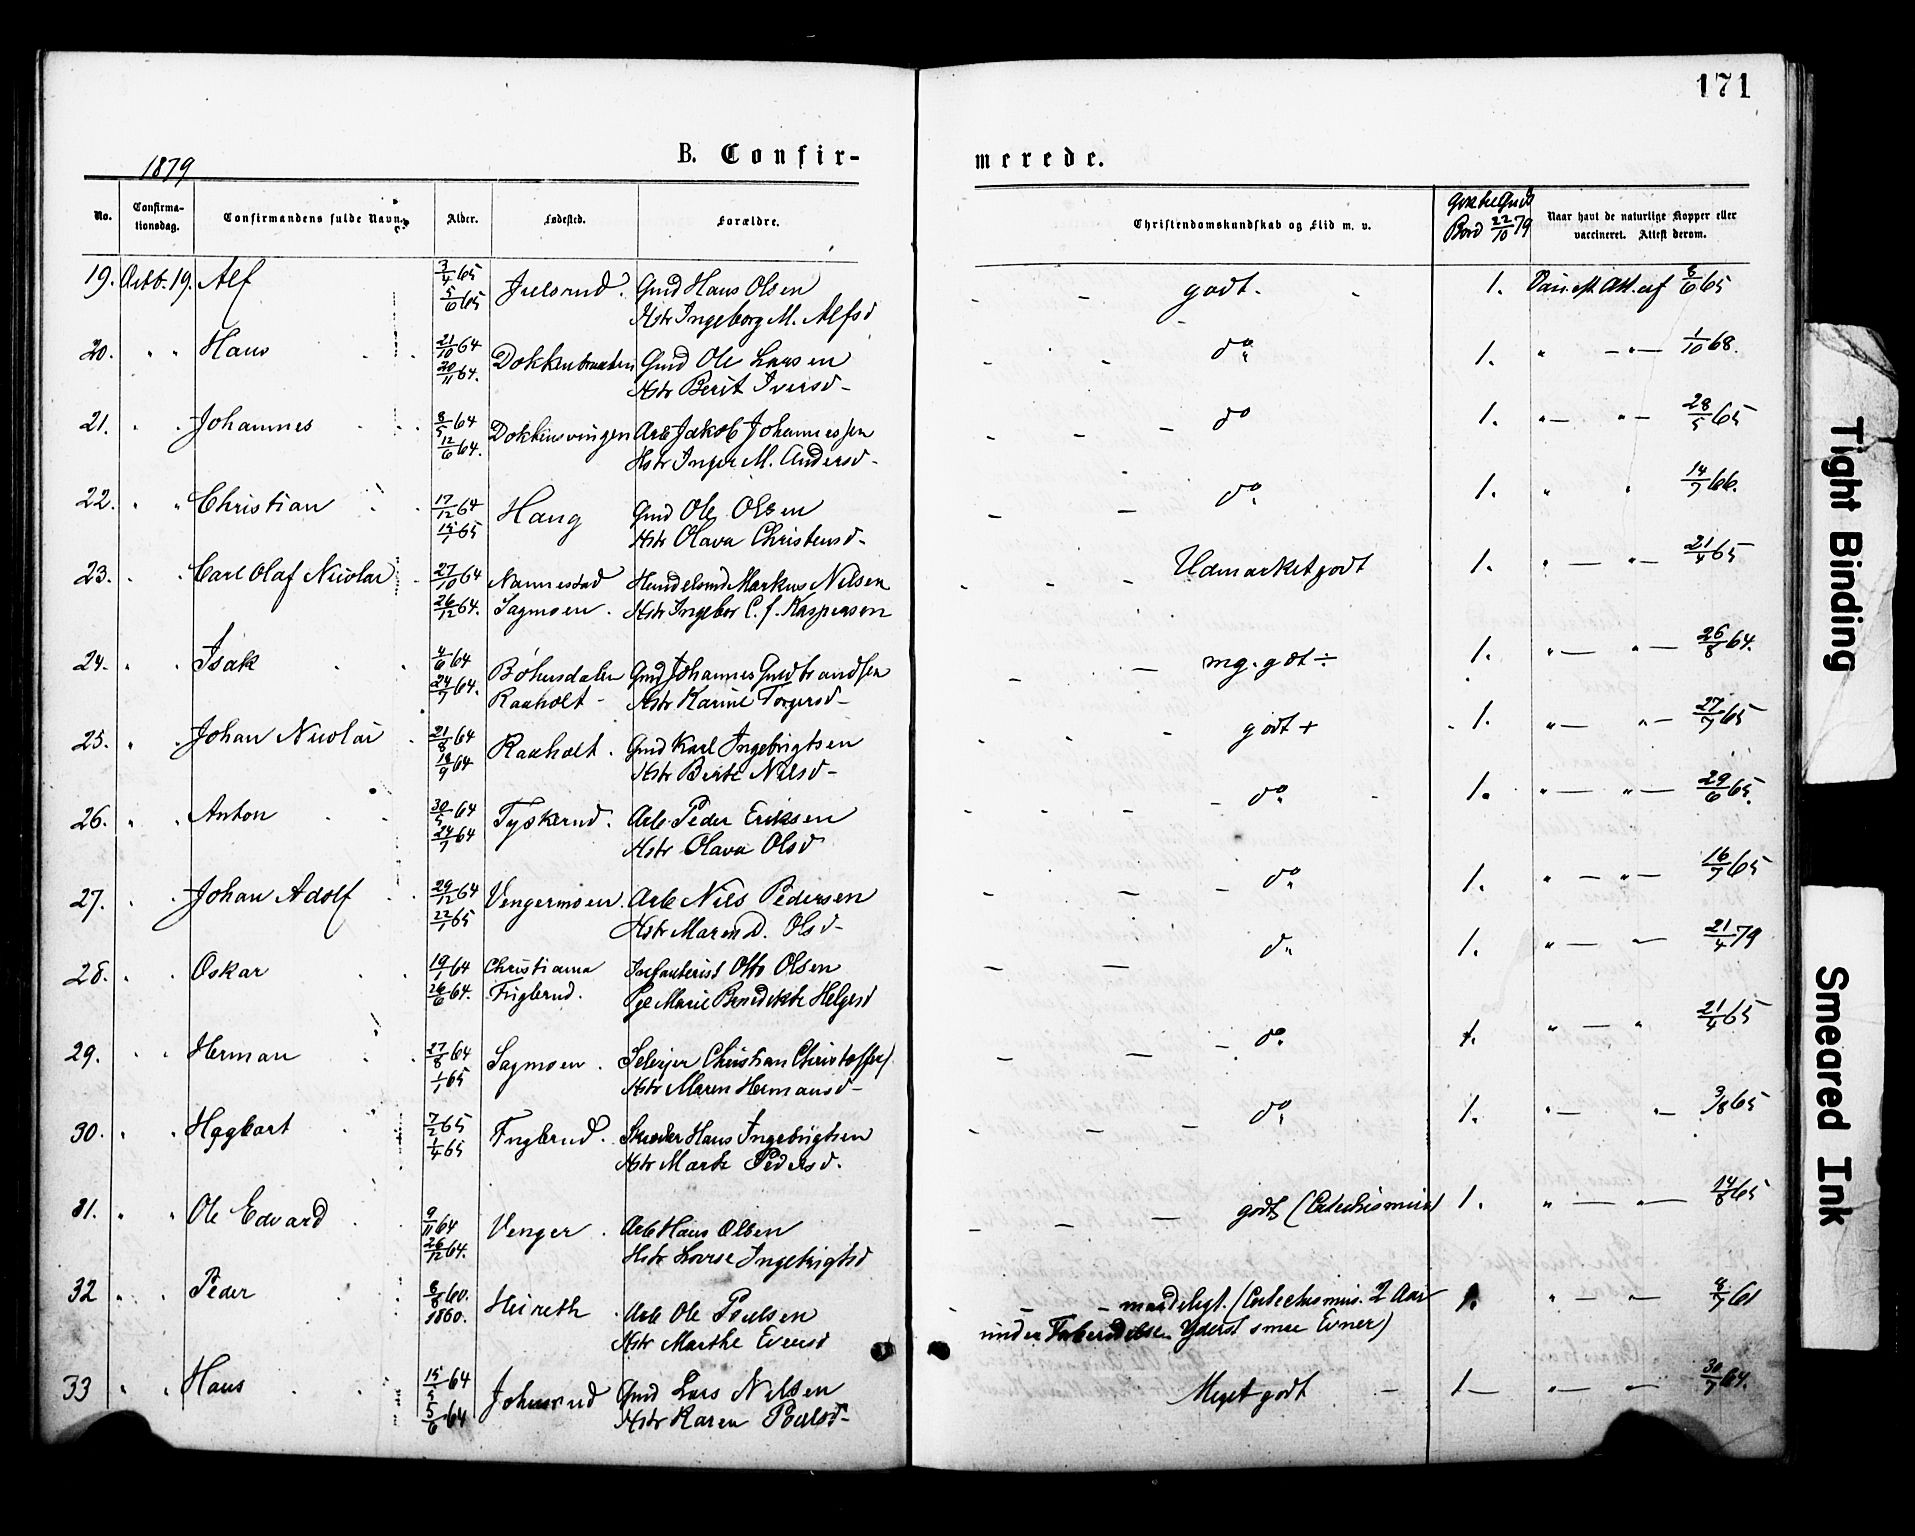 171
B. Confir-
merede.
1879
No.
Confirma-
tionsdag.
Confirmandens fulde Navn.
Alder.
Fødested.
Forældre.
Christendomskundskab og Flid m. v.
Guds
Bord 22/10 79
Naar havt de naturlige Kopper eller
vaccineret. Attest derom.
19. Octb. 19. Alf 3/4 65 Julsrud. Gmd Hans Olsen — — godt. 1. Att. af 8/6 65
5/6 65 Hstr Ingeborg M. Alfsd
20. " " Hans 21/10 64 Dokkenbraaten Gmd Ole Larsen do 1. " — " — 1/10 68.
20/11 64. Hstr Berit Iversd
21. " " Johannes 8/5 64 Dokkensvingen Arb Jakob Johannessen — — — do 1. " — " — 28/5 65
12/6 64. Hstr Inger M. Andersd
22. " " Christian 17/12 64 Haug Gmd Ole Olsen — — do 1. " " 14/7 66.
15/1 65 Hstr Olava Christensd
23. " " Carl Olaf Nicolai 27/10 64 Nannestad Markus Nilsen — — — Udmarket godt 1. " — " — 21/4 65
26/12 64. Sagmoen. Hstr Ingebor C. f. Kaspersen
24. " " Isak 4/6 64 Bøhnsdalen Gmd Johannes Gudbrandsen — — mg. godt ÷ 1. " — " — 26/8 64.
24/7 64. Raaholt Hstr Karine Torgersd
25. " " Johan Nicolai 21/8 64 Raaholt. Gmd Karl Ingebrigtsen — — — godt + 1. " — " — 27/7 65
18/9 64 Hstr Berte Nilsd
26. " " Anton 30/5 64 Tyskerud. Arb. Peder Eriksen — — — — do 1. " — " — 29/6 65.
24/7 64 Hstr Olava Olsd
27. " " Johan Adolf 29/12 64 Vengermoen. Arb Nils Pedersen — — — do 1. " — " — 16/7 65
22/1 65 Hstr Maren D. Olsd
28. " " Oskar 19/1 64 Christiania Infanterist Otto Olsen — — do 1. " — " — 21/4 79
26/6 64. Fuglerud. Pge Marie Benedikte Helgesd
29. " " Herman 27/8 64 Sagmoen. Selveier Christian — — — do. 1. " — " 21/4 65
1/1 65 Hstr Maren Hermansd
30. " " Hagbart 7/2 65 Fuglerud. Hans Ingebrigtsen — — — do 1. " — " — 3/8 65
1/4 65 Hstr Marte Pedersd.
31. " " Ole Edvard 9/11 64 Venger. Arb Hans Olsen — — — godt (Catechismus) 1. " — " — 14/8 65
26/12 64. Hstr Lovise Ingebrigtsd
32 " " Peder 8/8 60. Arb Ole Poulsen — — — maadeligt. (Catechismus. 2 Aar 1. " — " — 8/7 61
1860. Hstr Marthe Eversd under Forberedelse. Yderst smaa Evner)
33 " " Hans 15/5 64 Johnsrud Gmd Lars Nilsen Meget godt — 1 — " — " — 30/7 64.
5/6 64 Hstr Karen Poulsd
Tight Binding
Smeared Ink